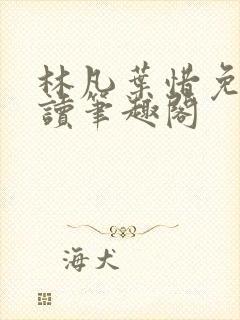 林凡葉惜免
讀筆趣閣
海犬